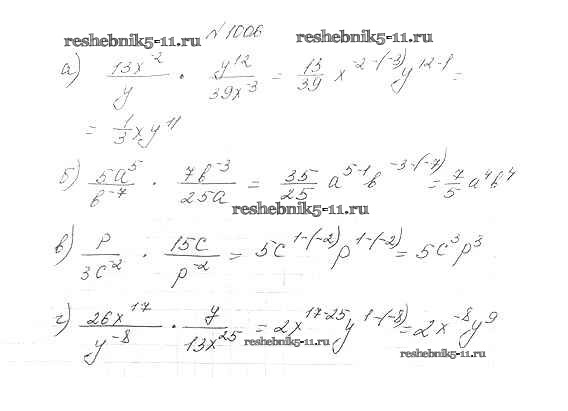 №1006
reshebnik5-11.ru reshebnik5-11.ru
а) 13x⁻²/y · y¹²/39x⁻³ = 13/39 x⁻²⁻⁽⁻³⁾y¹²⁻¹ =
= 1/3 xy¹¹
б) 5a⁵/b⁻⁷ · 7b⁻³/25a = 35/25 a⁵⁻¹b⁻³⁻⁽⁻⁷⁾ = 7/5 a⁴b⁴
reshebnik5-11.ru
в) p/3c⁻² · 15c/p⁻² = 5c¹⁻⁽⁻²⁾p¹⁻⁽⁻²⁾ = 5c³p³
г) 26x¹⁷/y⁻⁸ · y/13x²⁵ = 2x¹⁷⁻²⁵y¹⁻⁽⁻⁸⁾ = 2x⁻⁸y⁹
reshebnik5-11.ru reshebnik5-11.ru